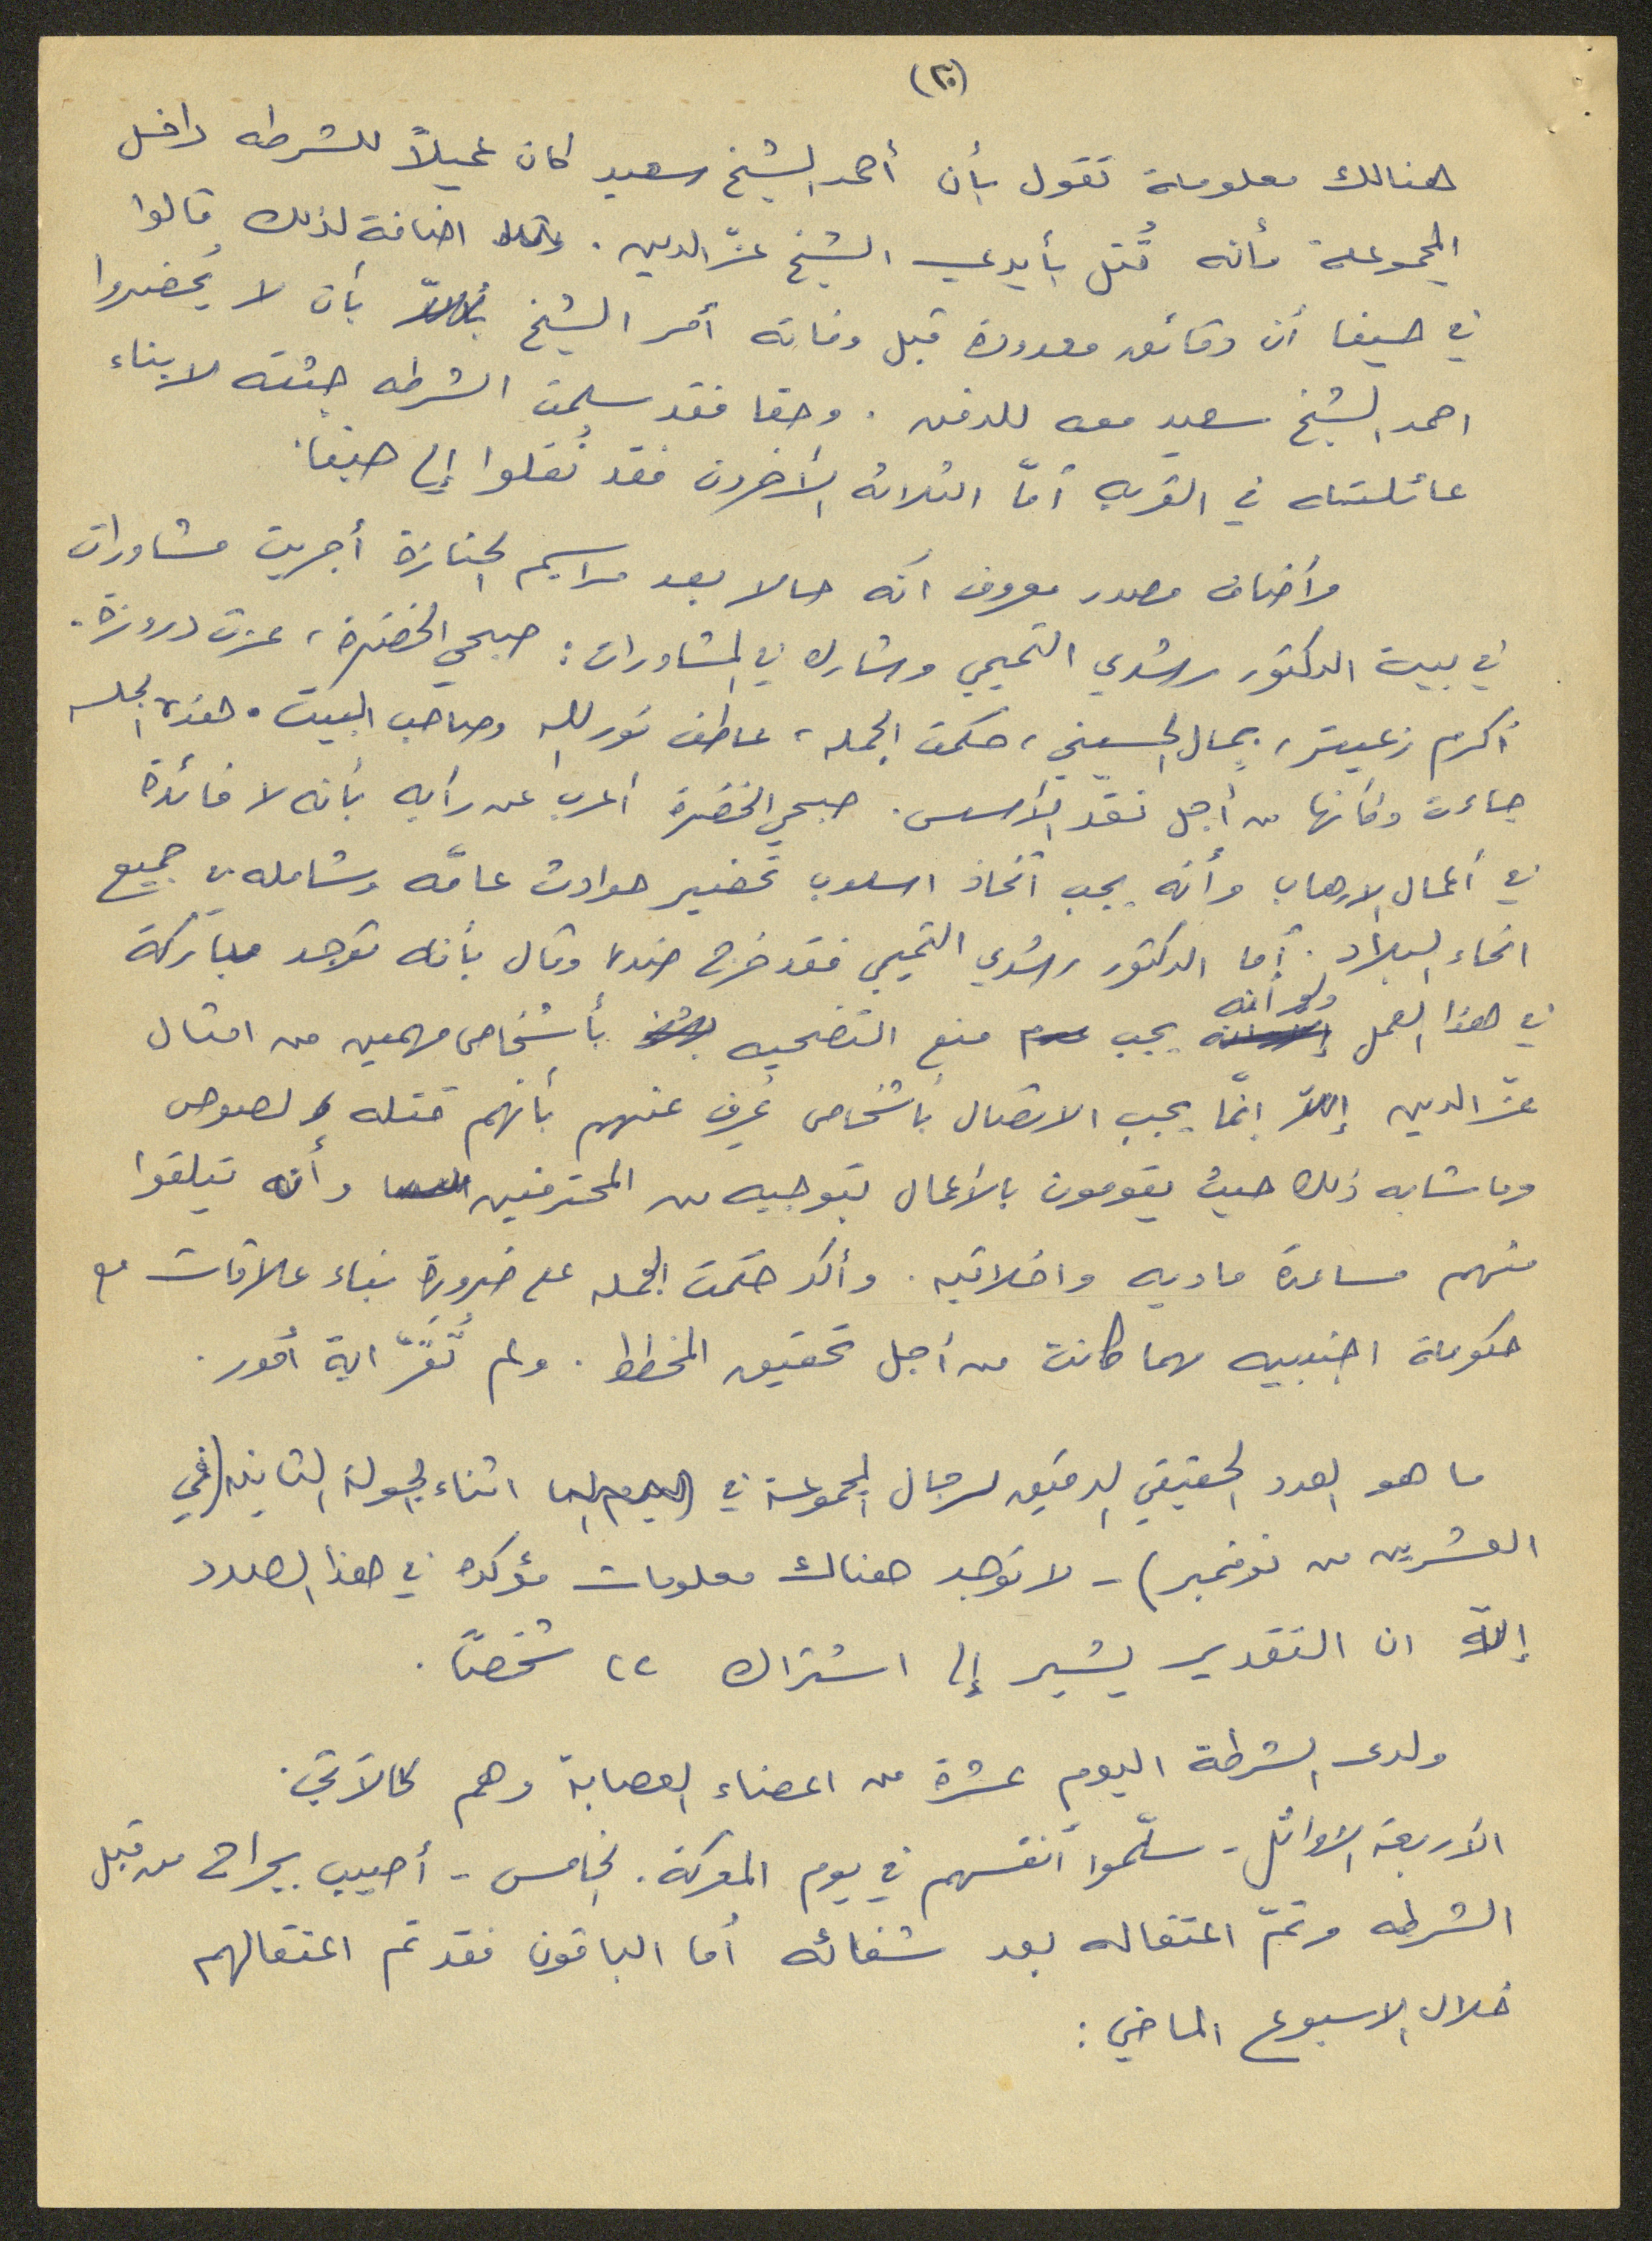 (٢٠)
هنالك معلومة تقول بأن أحمد الشيخ سعيد كان عميلاً للشرطه داخل
المجموعة وأنه قُتل بأيدي الشيخ عزّ الدين. اضافة لذلك قالوا
في حيفا أن دقائق معدودة قبل وفاته أمر الشيخ بأن لا يُحضروا
احمد الشيخ سعيد معه للدفن. وحقا فقد سلمت الشرطه جثته لابناء
عائلته في القريه أمّا الثلاثه الأخرون فقد نُقلوا إلى حيفا.
وأضاف مصدر معروف انه حالا بعد مراسيم الجنازة أجريت مشاورات
في بيت الدكتور رشدي التميمي وشارك في المشاورات: صبحي الخضرة، عزت دروزة.
أكرم زعيتر، جمال الحسيني، حكمت الجمله، عاطف نورالله وصاحب البيت. هذه الجلسه
جاءت وكأنها من أجل نقد الأسس. صبحي الخضرة أعرب عن رأيه بأنه لا فائدة
في أعمال الارهاب وأنه يجب اتخاذ اسلوب تحضير حوادث عامّه وشامله في جميع
انحاء البلاد. أما الدكتور رشدي التميمي فقد خرج ضده وقال بأنه توجد مباركة
في هذا العمل ولو أنه يجب منع التضحيه بأشخاص مهمين من امثال
عزّ الدين إنمّا يجب الاتصال بأشخاص عُرف عنهم بأنهم قتله ولصوص
وما شابه ذلك حيث يقومون بالأعمال بتوجيه من المحترفين وأنه يتلقوا
منهم مساعدة ماديه واخلاقيه. وأكد حكمت الجمله على ضرورة بناء علاقات مع
حكومة اجنبيه مهما كانت من أجل تحقيق المخطط. ولم تُقرّ اية أمور.
ما هو العدد الحقيقي الدقيق لرجال المجموعة في اثناء الجولة الثانيه (في
العشرين من نوفمبر) - لا توجد هناك معلومات مؤكده في هذا الصدد
إلا ان التقدير يشير إلى اشتراك ٢٢ شخصاً.
ولدى الشرطة اليوم عشرة من اعضاء العصابة وهم كالآتي.
الأربعة الأوائل - سلّموا أنفسهم في يوم المعركة. الخامس - أصيب بجراح من قبل
الشرطه وتمّ اعتقاله بعد شفائه أما الباقون فقد تم اعتقالهم
خلال الاسبوع الماضي: